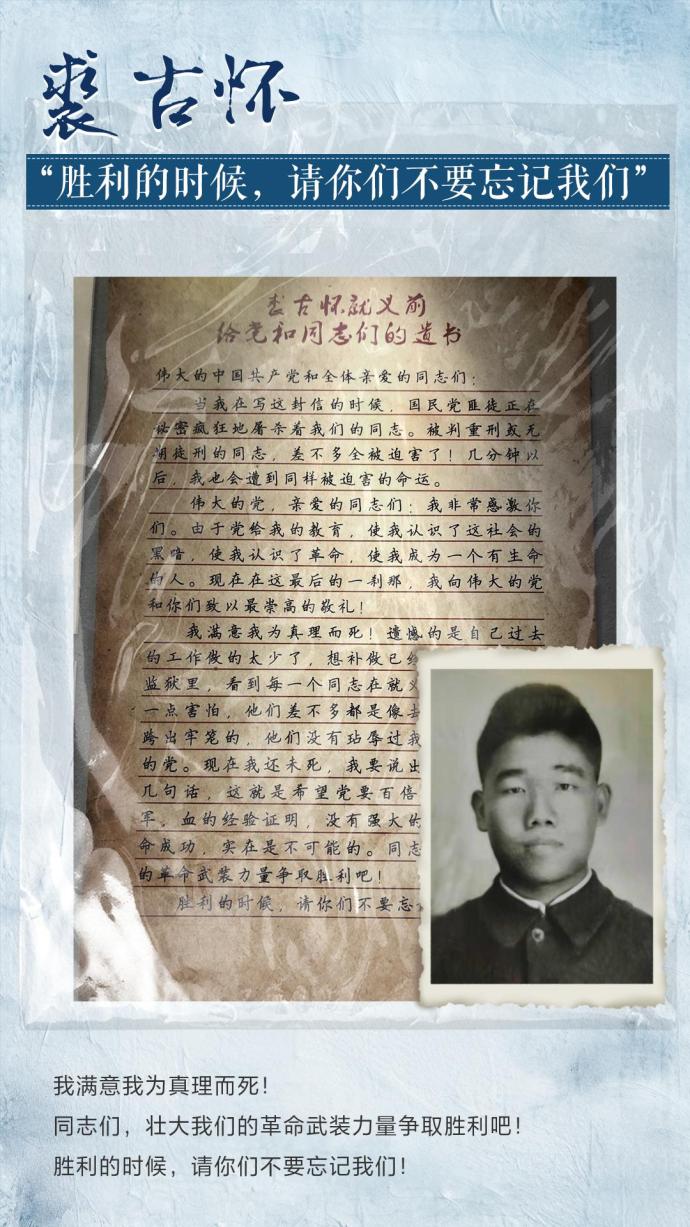 裘古怀
“胜利的时候，请你们不要忘记我们”
裘古怀就义前
给党和同志们的遗书
伟大的中国共产党和全体亲爱的同志们：
当我在写这封信的时候，国民党匪徒正在
秘密疯狂地屠杀着我们的同志。被判重刑或无
期徒刑的同志，差不多全被迫害了！几分钟以
后，我也会遭到同样被迫害的命运。
伟大的党，亲爱的同志们：我非常感激你
们。由于党给我的教育，使我认识了这社会的
黑暗，使我认识了革命，使我成为一个有生命
的人。现在在这最后的一刹那，我向伟大的党
和你们致以最崇高的敬礼！
我满意我为真理而死！遗憾的是自己过去
的工作做的太少了，想补做已经
监狱里，看到每一个同志在就义
一点害怕，他们差不多都是像去
跨出牢笼的，他们没有玷辱过我
的党。现在我还未死，我要说出
几句话，这就是希望党要百倍
军。血的经验证明，没有强大的
命成功，实在是不可能的。同志
的革命武装力量争取胜利吧！
胜利的时候，请你们不要忘
我满意我为真理而死！
同志们，壮大我们的革命武装力量争取胜利吧！
胜利的时候，请你们不要忘记我们！